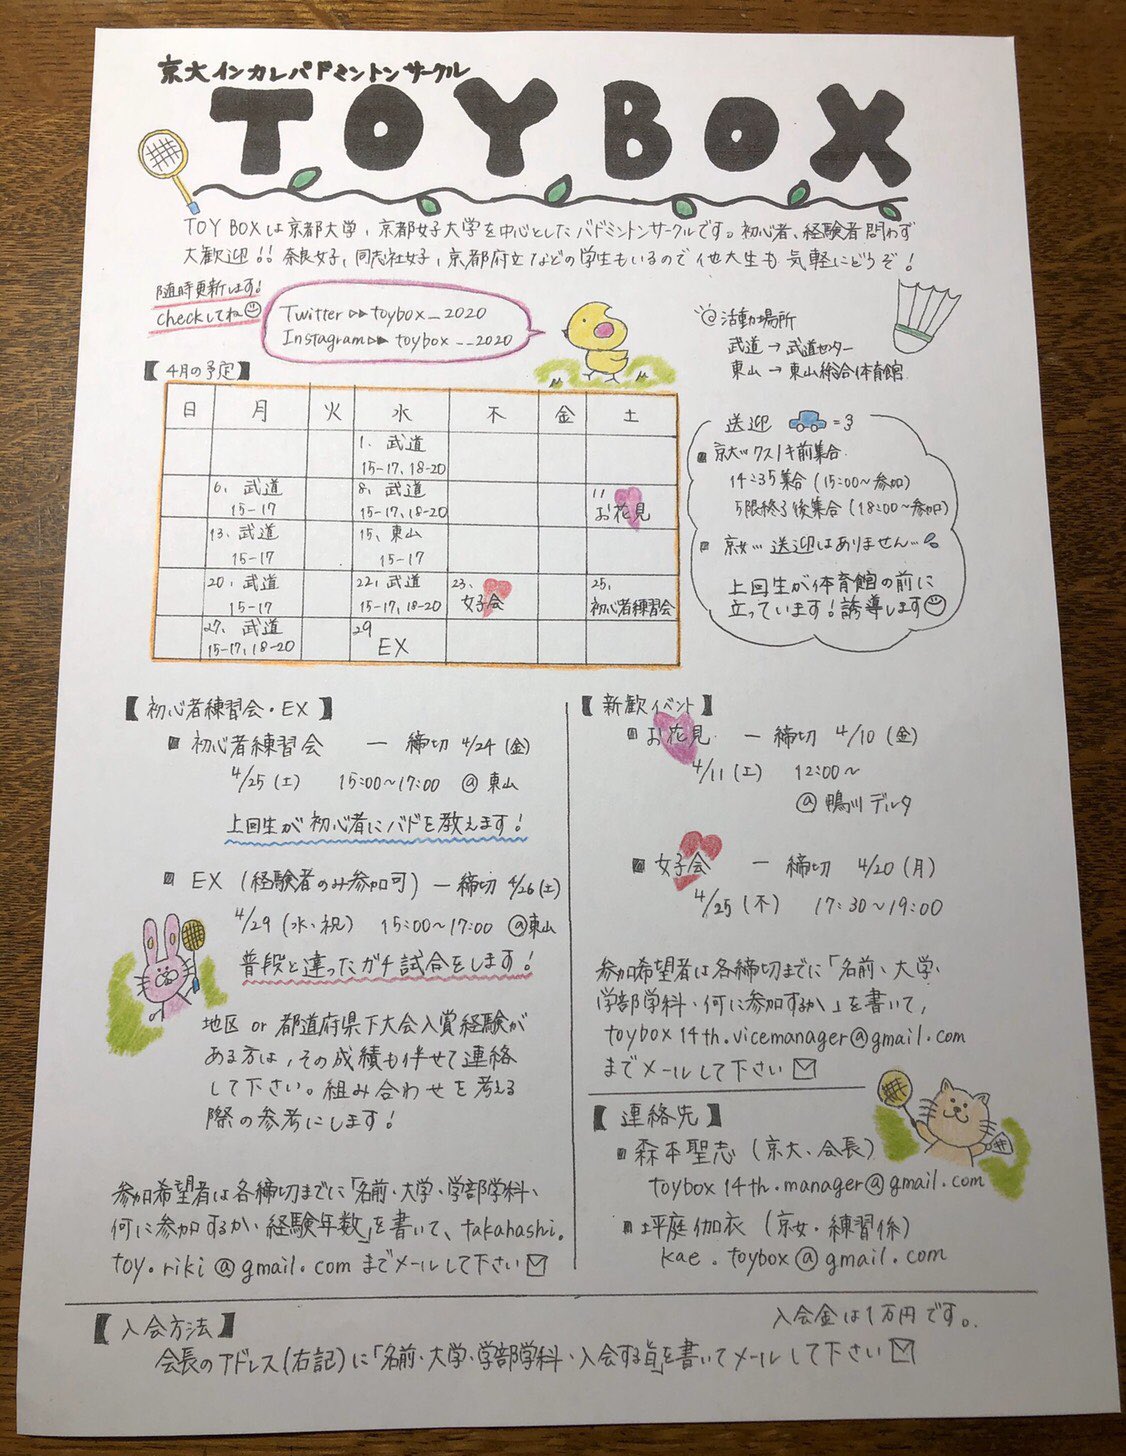 京大インカレバドミントンサークル
TOY BOX
TOY BOXは京都大学、京都女子大学を中心としたバドミントンサークルです。初心者、経験者問わず
大歓迎!!奈良女子、同志社女子、京都府立などの学生もいるので他大生も気軽にどうぞ!
随時更新します!
checkしてね
Twitter▷▷toybox_2020
Instagram▷▷ toybox__2020
@活動場所
武道→武道センター
東山→東山総合体育館
【4月の予定】
日 月 火 水 木 金 土
1、武道
15-17、18-20
6、武道 8、武道 11
15-17 15-17、18-20 お花見
13、武道 15、東山
15-17 15-17
20、武道 22、武道 23、 25、
15-17 15-17、18-20 女子会 初心者練習会
27、武道 29
15-17、18-20 EX
送迎 =3
■ 京大…クスノキ前集合
14:35集合(15:00~参加)
5限終了後集合(18:00~参加)
■ 京女…送迎はありません…
上回生が体育館の前に
立っています!誘導します
【初心者練習会・EX】
■ 初心者練習会 ― 締切 4/24(金)
4/25(土) 15:00~17:00 @東山
上回生が初心者にバドを教えます!
■ EX(経験者のみ参加可)― 締切 4/26(土)
4/29(水、祝) 15:00~17:00 @東山
普段と違ったガチ試合をします!
地区 or 都道府県下大会入賞経験が
ある方は、その成績も併せて連絡
して下さい。組み合わせを考える
際の参考にします!
参加希望者は各締切までに「名前・大学・学部学科・
何に参加するか・経験年数」を書いて、takahashi.
toy.riki@gmail.comまでメールして下さい
【新歓イベント】
■ お花見 ― 締切 4/10(金)
4/11(土) 12:00~
@鴨川デルタ
■ 女子会 ― 締切 4/20(月)
4/25(木) 17:30~19:00
参加希望者は各締切までに「名前・大学・
学部学科・何に参加するか」を書いて、
toybox14th.vicemanager@gmail.com
までメールして下さい
【連絡先】
■ 森本聖志(京大、会長)
toybox14th.manager@gmail.com
■ 坪庭伽衣(京女・練習係)
kae.toybox@gmail.com
【入会方法】 入会金は1万円です。
会長のアドレス(右記)に「名前・大学・学部学科・入会する旨」を書いてメールして下さい